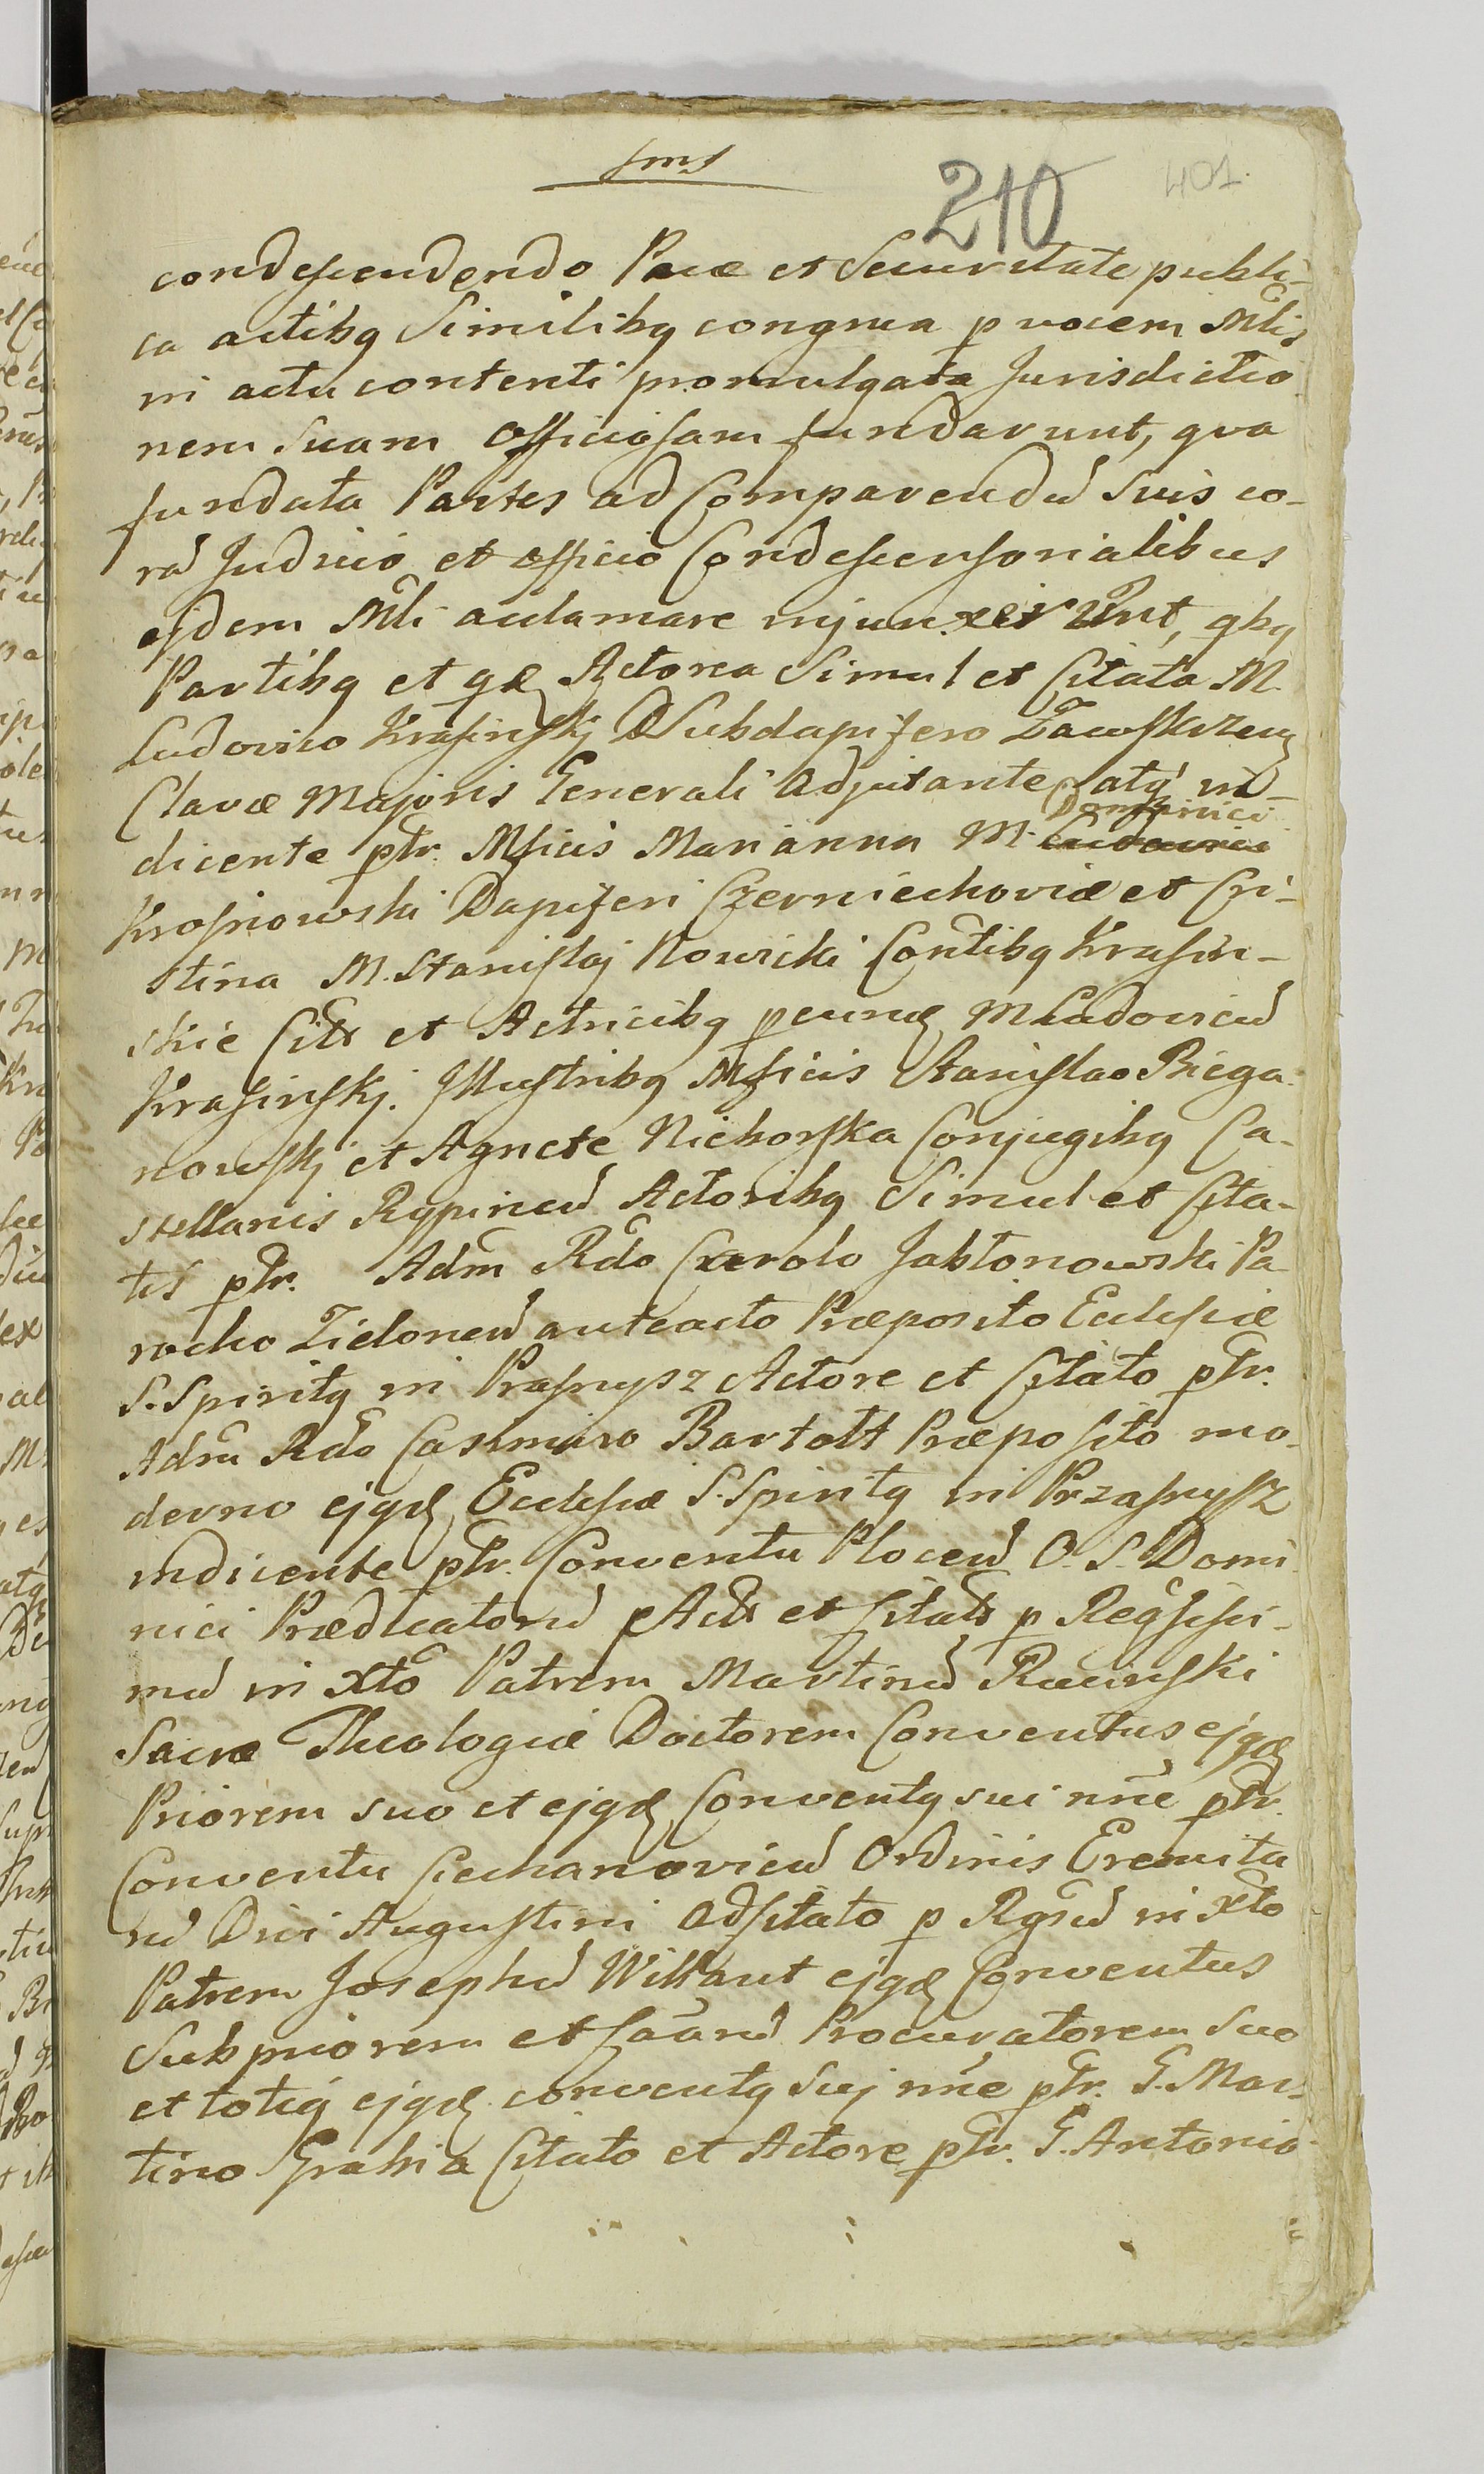 210 401.
condescendendo Pace et Securitate publi-
ca actibq Similibq congrua p vocem Mlis
in actu contenti promulgata Jurisdictio
nem Suam Officiosam fundavunt, qva
fundata Partes ad Comparendũ Suis co-
rã Judicio et officio Condescensorialibus
ejdem Mli aclamare injunxerunt, qbq
Partibq et qd Actorea Simul et Citata M.
Ludovico Krasinskj Subdapifero Zawskrzen
Clavæ Majoris Generali Adjutante Catq in-
Dominici
dicente ptr. Mficis Marianna M. Ludovici
Krosnowski Dapiferi Czerniechoviæ et Cri-
stina M. Stanislaj Nowicki Contibq Krasin-
skie Cits et Actricibq p eund M Ludovicũ
Krasinskj. Illustribq Mficis Stanislao Biega
nowskj et Agnete Nichorska Conjugibq Ca-
stellanis Rypineñ Actoribq Simul et Cita-
tis ptr. Adm Rdo Carolo Jabłonowski Pa
rocho Zieloneñ anteacto Præposito Ecclesiæ
S. Spiritq in Prasnysz Actore et Citato ptr.
Adm Rdo Casimiro Bartołt Præposito mo-
derno ejqd Ecclesiæ S. Spiritq in Przasnysz
indicente ptr. Conventu Ploceñ O. S. Domi
nici Prædicatorũ Acts et Citats p
mũ in Xto Patrem Martinũ Racinski
Sacræ Theologiæ Doctorem Conventus ejqd
Priorem suo et ejqd Conventq sui nñe ptr.
Conventu Ciechanovieñ Ordinis Eremita
rũ Divi Augustini Adcitato p Rgsũ in Xto
Patrem Josephũ Willant ejqd Conventus
Subpriorem et Procuratorem Suo
et totiq ejqd conventq Suj nñe ptr. G. Mar-
tino Grabia Citato et Actore ptr. G. Antonio